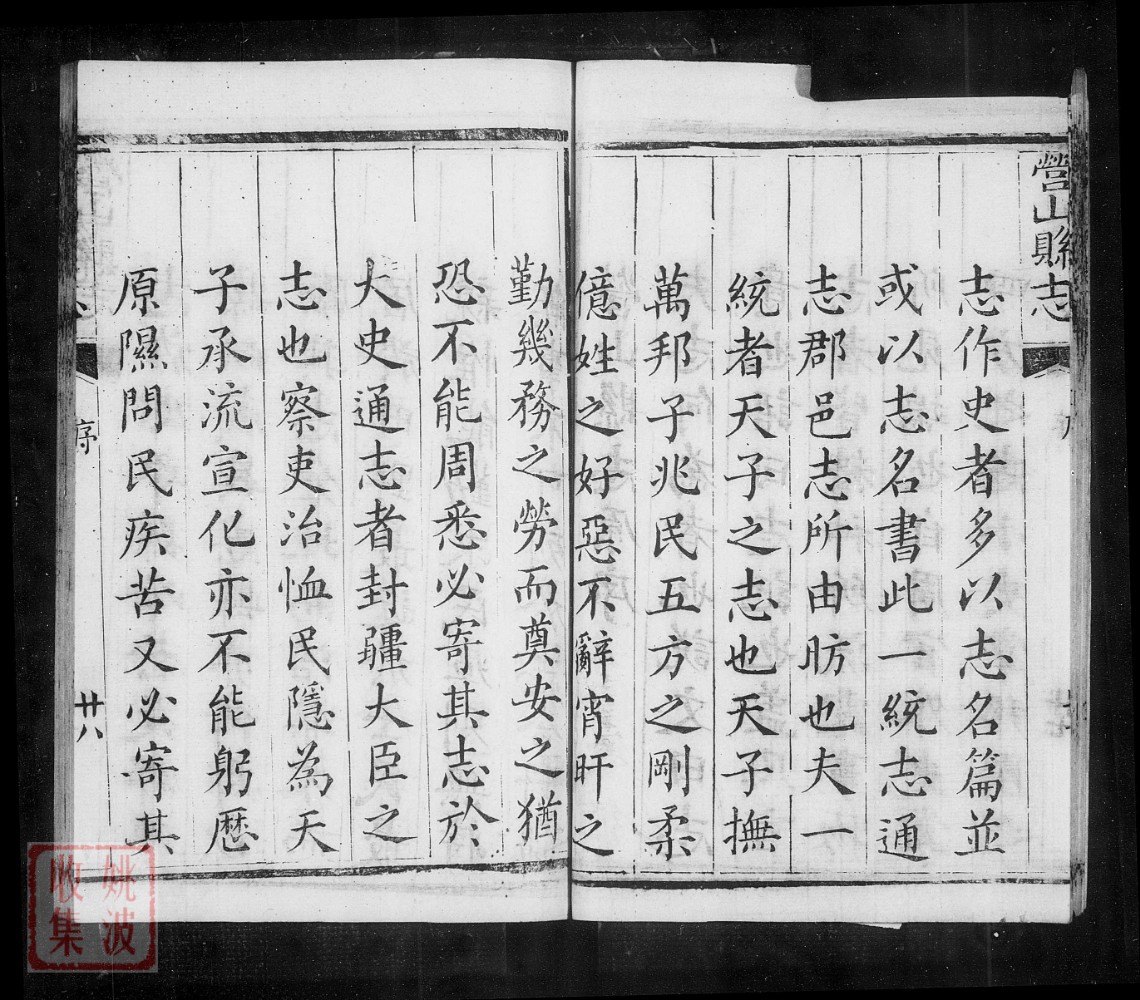 營山縣志
志作史者多以志名篇並
或以志名書此一統志通
志郡邑志所由昉也夫一
統者天子之志也天子撫
萬邦子兆民五方之剛柔
億姓之好惡不辭宵旰之
勤幾務之勞而奠安之猶
恐不能周悉必寄其志於
大史通志者封疆大臣之
志也察吏治恤民隱為天
子承流宣化亦不能躬歷
原隰問民疾苦又必寄其
序
廿八
姚波
收集